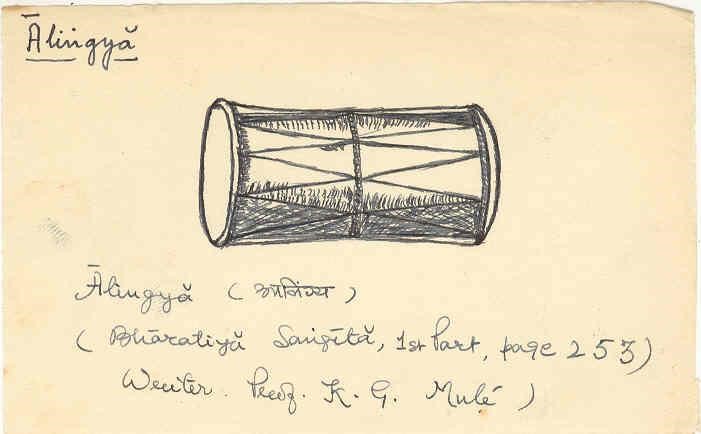 Ālingyă
Ālingyă ( आलिंग्य )
( Bhāratiyă Sangītă, 1st Part, page 253)
Writer. Prof. K. G. Mulé )